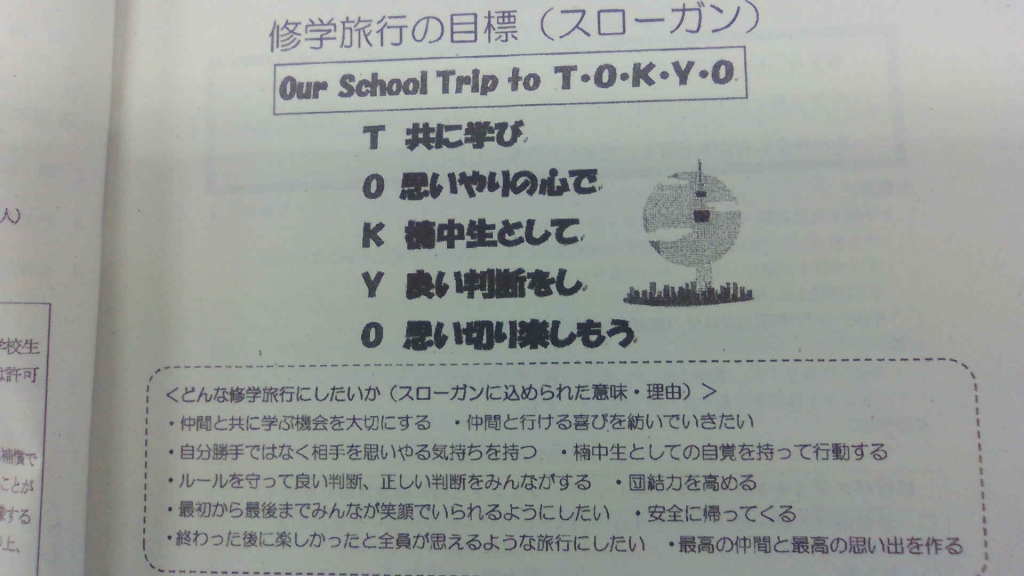 修学旅行の目標（スローガン）
Our School Trip to T・O・K・Y・O
T 共に学び
O 思いやりの心で
K 楠中生として
Y 良い判断をし
O 思い切り楽しもう
＜どんな修学旅行にしたいか（スローガンに込められた意味・理由）＞
・仲間と共に学ぶ機会を大切にする ・仲間と行ける喜びを紡いでいきたい
・自分勝手ではなく相手を思いやる気持ちを持つ ・楠中生としての自覚を持って行動する
・ルールを守って良い判断、正しい判断をみんながする ・団結力を高める
・最初から最後までみんなが笑顔でいられるようにしたい ・安全に帰ってくる
・終わった後に楽しかったと全員が思えるような旅行にしたい ・最高の仲間と最高の思い出を作る
人）
学校生
は許可
補償で
ことが
する
上、